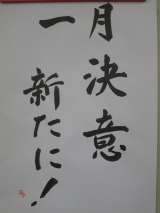 一月決意
新たに!